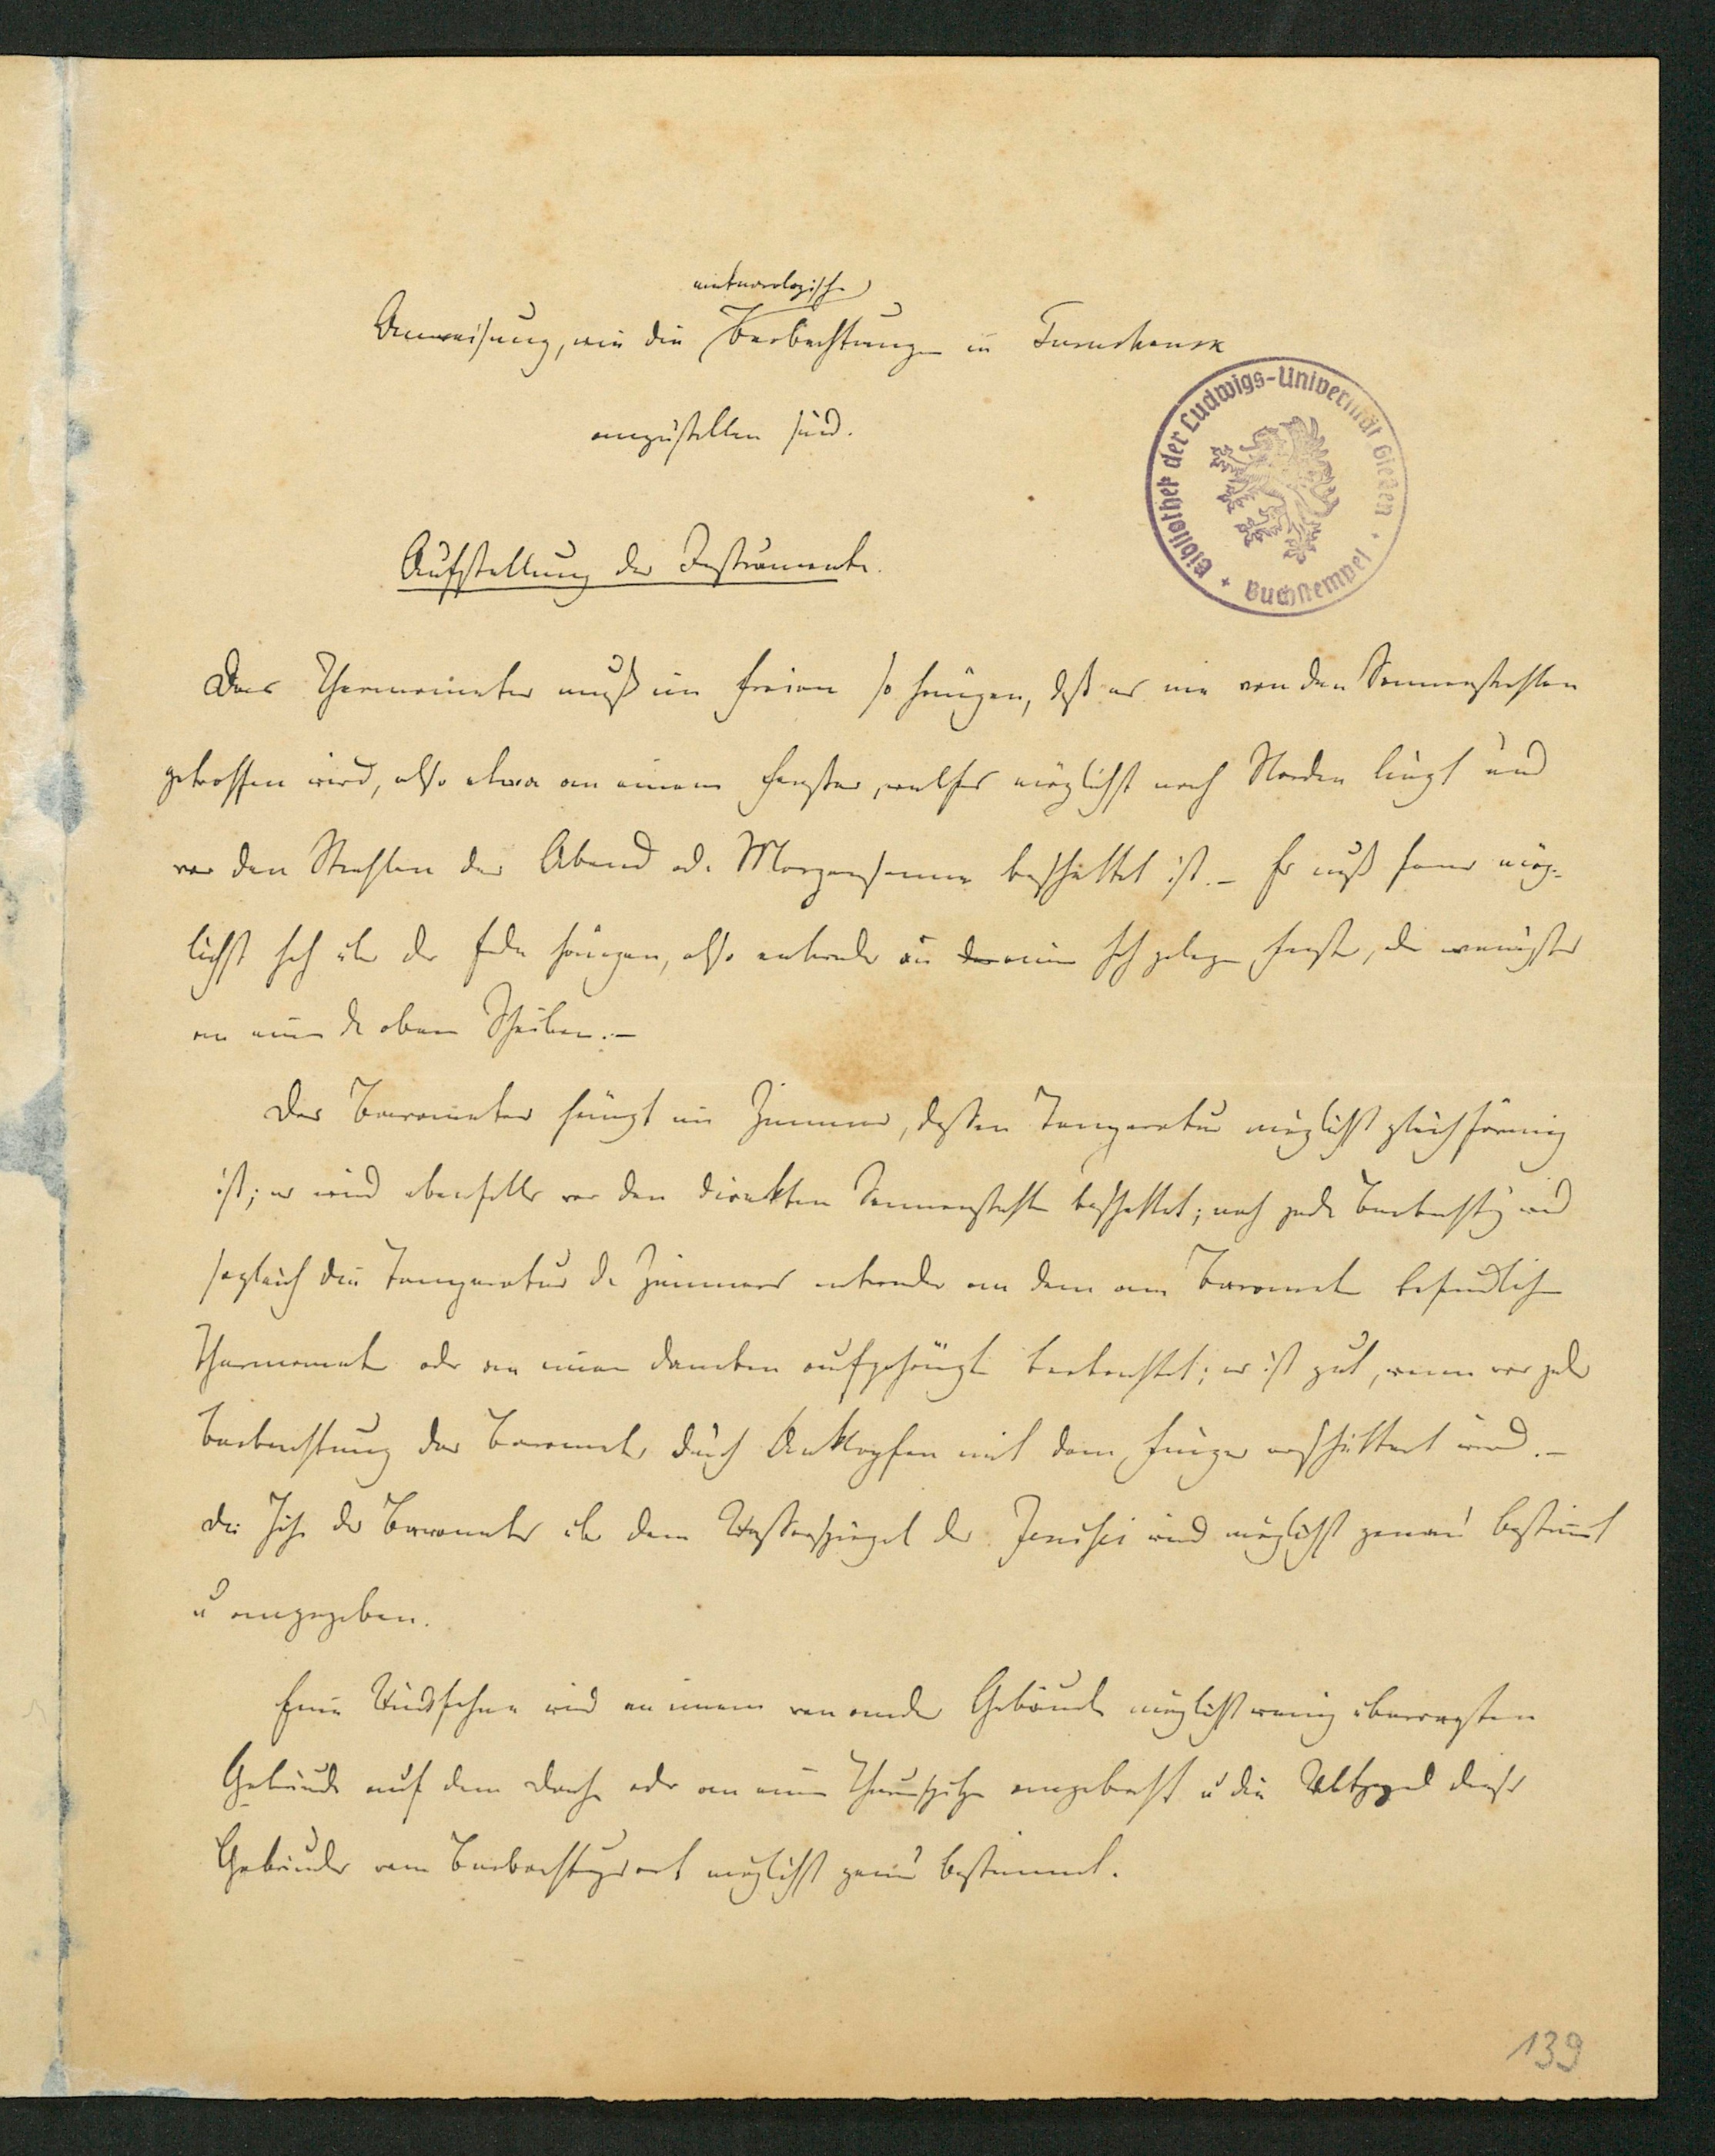 meteorologische
Anweisung, wie die Beobachtungen in Turuchansk
anzustellen sind.
Bibliothek der Ludwigs-Universität Gießen
Buchstempel
Aufstellung der Instrumente.
Das Thermometer muß im Freien so hängen, daß es nie von den Sonnenstrahlen
getroffen wird, also etwa an einem Fenster, welches möglichst nach Norden liegt und
vor den Strahlen der Abend od. Morgensonne beschattet ist. – Es muß ferner mög-
lichst hoch über der Erde hängen, also entweder an einem hoch gelegen Fenster, oder wenigstens
an einer der obern Scheiben. –
Das Barometer hängt im Zimmer, dessen Temperatur möglichst gleichförmig
ist; es wird ebenfalls vor den direkten Sonnenstrahlen beschattet; nach jeder Beobachtung wird
sogleich die Temperatur des Zimmers entweder an dem am Barometer befindlichen
Thermometer oder an einem daneben aufgehängten beobachtet; es ist gut, wenn vor jeder
Beobachtung das Barometer durch Anklopfen mit dem Finger erschüttert wird. –
Die Höhe des Barometers über dem Wasserspiegel des Jenisei wird möglichst genau bestimmt
u angegeben.
Eine Windfahne wird an einem von andern Gebäuden möglichst wenig überragten
Gebäude auf dem Dache oder an einer Thurmspitze angebracht u die dieses
Gebäudes vom Beobachtungsort möglichst genau bestimmt.
139